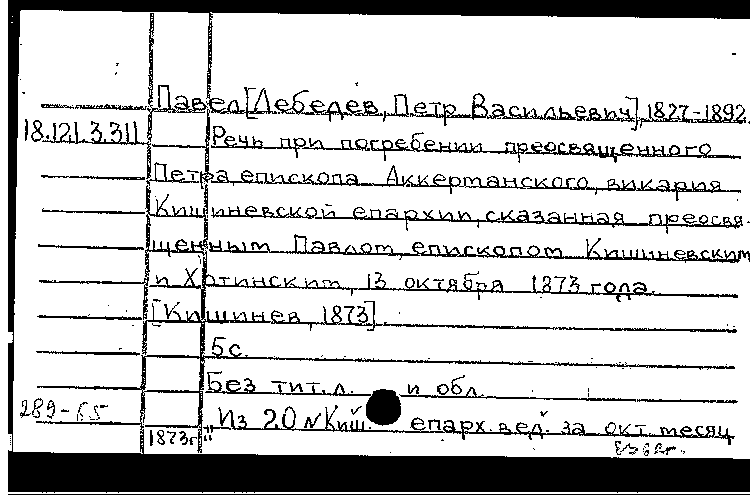 Павел [Лебедев, Петр Васильевич], 1827-1892.
18.121.3.311
Речь при погребении преосвященного
Петра, епископа Аккерманского, викария
Кишиневской епархии, сказанная преосвя-
щенным Павлом, епископом Кишиневским
и Хотинским, 13 октября 1873 года.
[Кишинев, 1873].
5с.
Без тит. л. и обл.
289-65
"Из 20 N Киш. епарх. вед. за окт. месяц
1873г."